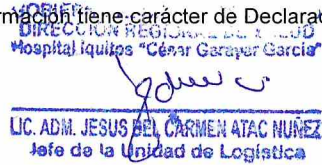 rmación tiene carácter de Declarac
DIRECCION REGIONAL DE SALUD
Hospital Iquitos "César Garayar García"
LIC. ADM. JESUS DEL CARMEN ATAC NUÑEZ
Jefe de la Unidad de Logística